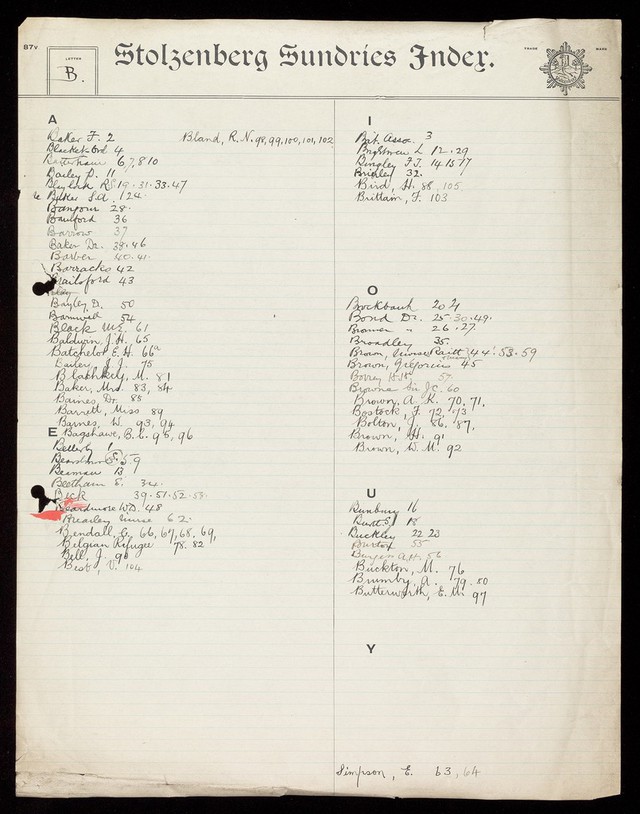 B7V
LETTER
B.
Stolzenberg Sundries Index.
TRADE
MARK
A
Baker F. 2
Bland, R. N. 98, 99, 100, 101, 102
4
6, 7, 8, 10
Bailey D. 11
19. 31. 33. 47
Baker S.A. 124.
28.
36
Barrow 37
Baker Dr. 38. 46
Barber 40. 41.
Barracks 42
Brailsford 43
Bayley D. 50
Barnwell 54
Black M.E. 61
Baldwin, J. H. 65
Batchelor E. H. 66a
J. 75
M. 81
Baker, Mrs. 83, 84
Baines, Dr. 85
Barrett, Miss 89
Barnes, W. 93, 94
E
Bagshawe, B. C. 95, 96
1
5. 9
13
Beetham E. 34.
Beck 39. 51. 52. 53.
Beardmore W.D. 48
Brearley Nurse 62.
Bendall, E. 66, 67, 68, 69,
Belgian Refugee 78. 82
Bell, J. 90
Best, V. 104
I
Brit. Assoc. 3
L 12. 29
Bingley F.J. 14. 15. 17
32.
Bird, H. 88, 105
Brittain, F. 103
O
Brockbank 20 21
Bond Dr. 25. 30. 49.
26. 27.
Broadley 35.
Brown, 44. 53. 59
Brown, Gregorius 45
57.
Browne Sir J.C. 60
Brown, A. K. 70, 71,
Bostock, F. 72, 73
Bolton, J. 86, 87,
Brown, H. 91
Brown, W. M. 92
U
Bunbury 16
18
Buckley 22 23
Burton 55
Burgess A.H. 56
Buckton, M. 76
Brumby A. 79. 80
Butterworth, E. M. 97
Y
Simpson, E. 63, 64